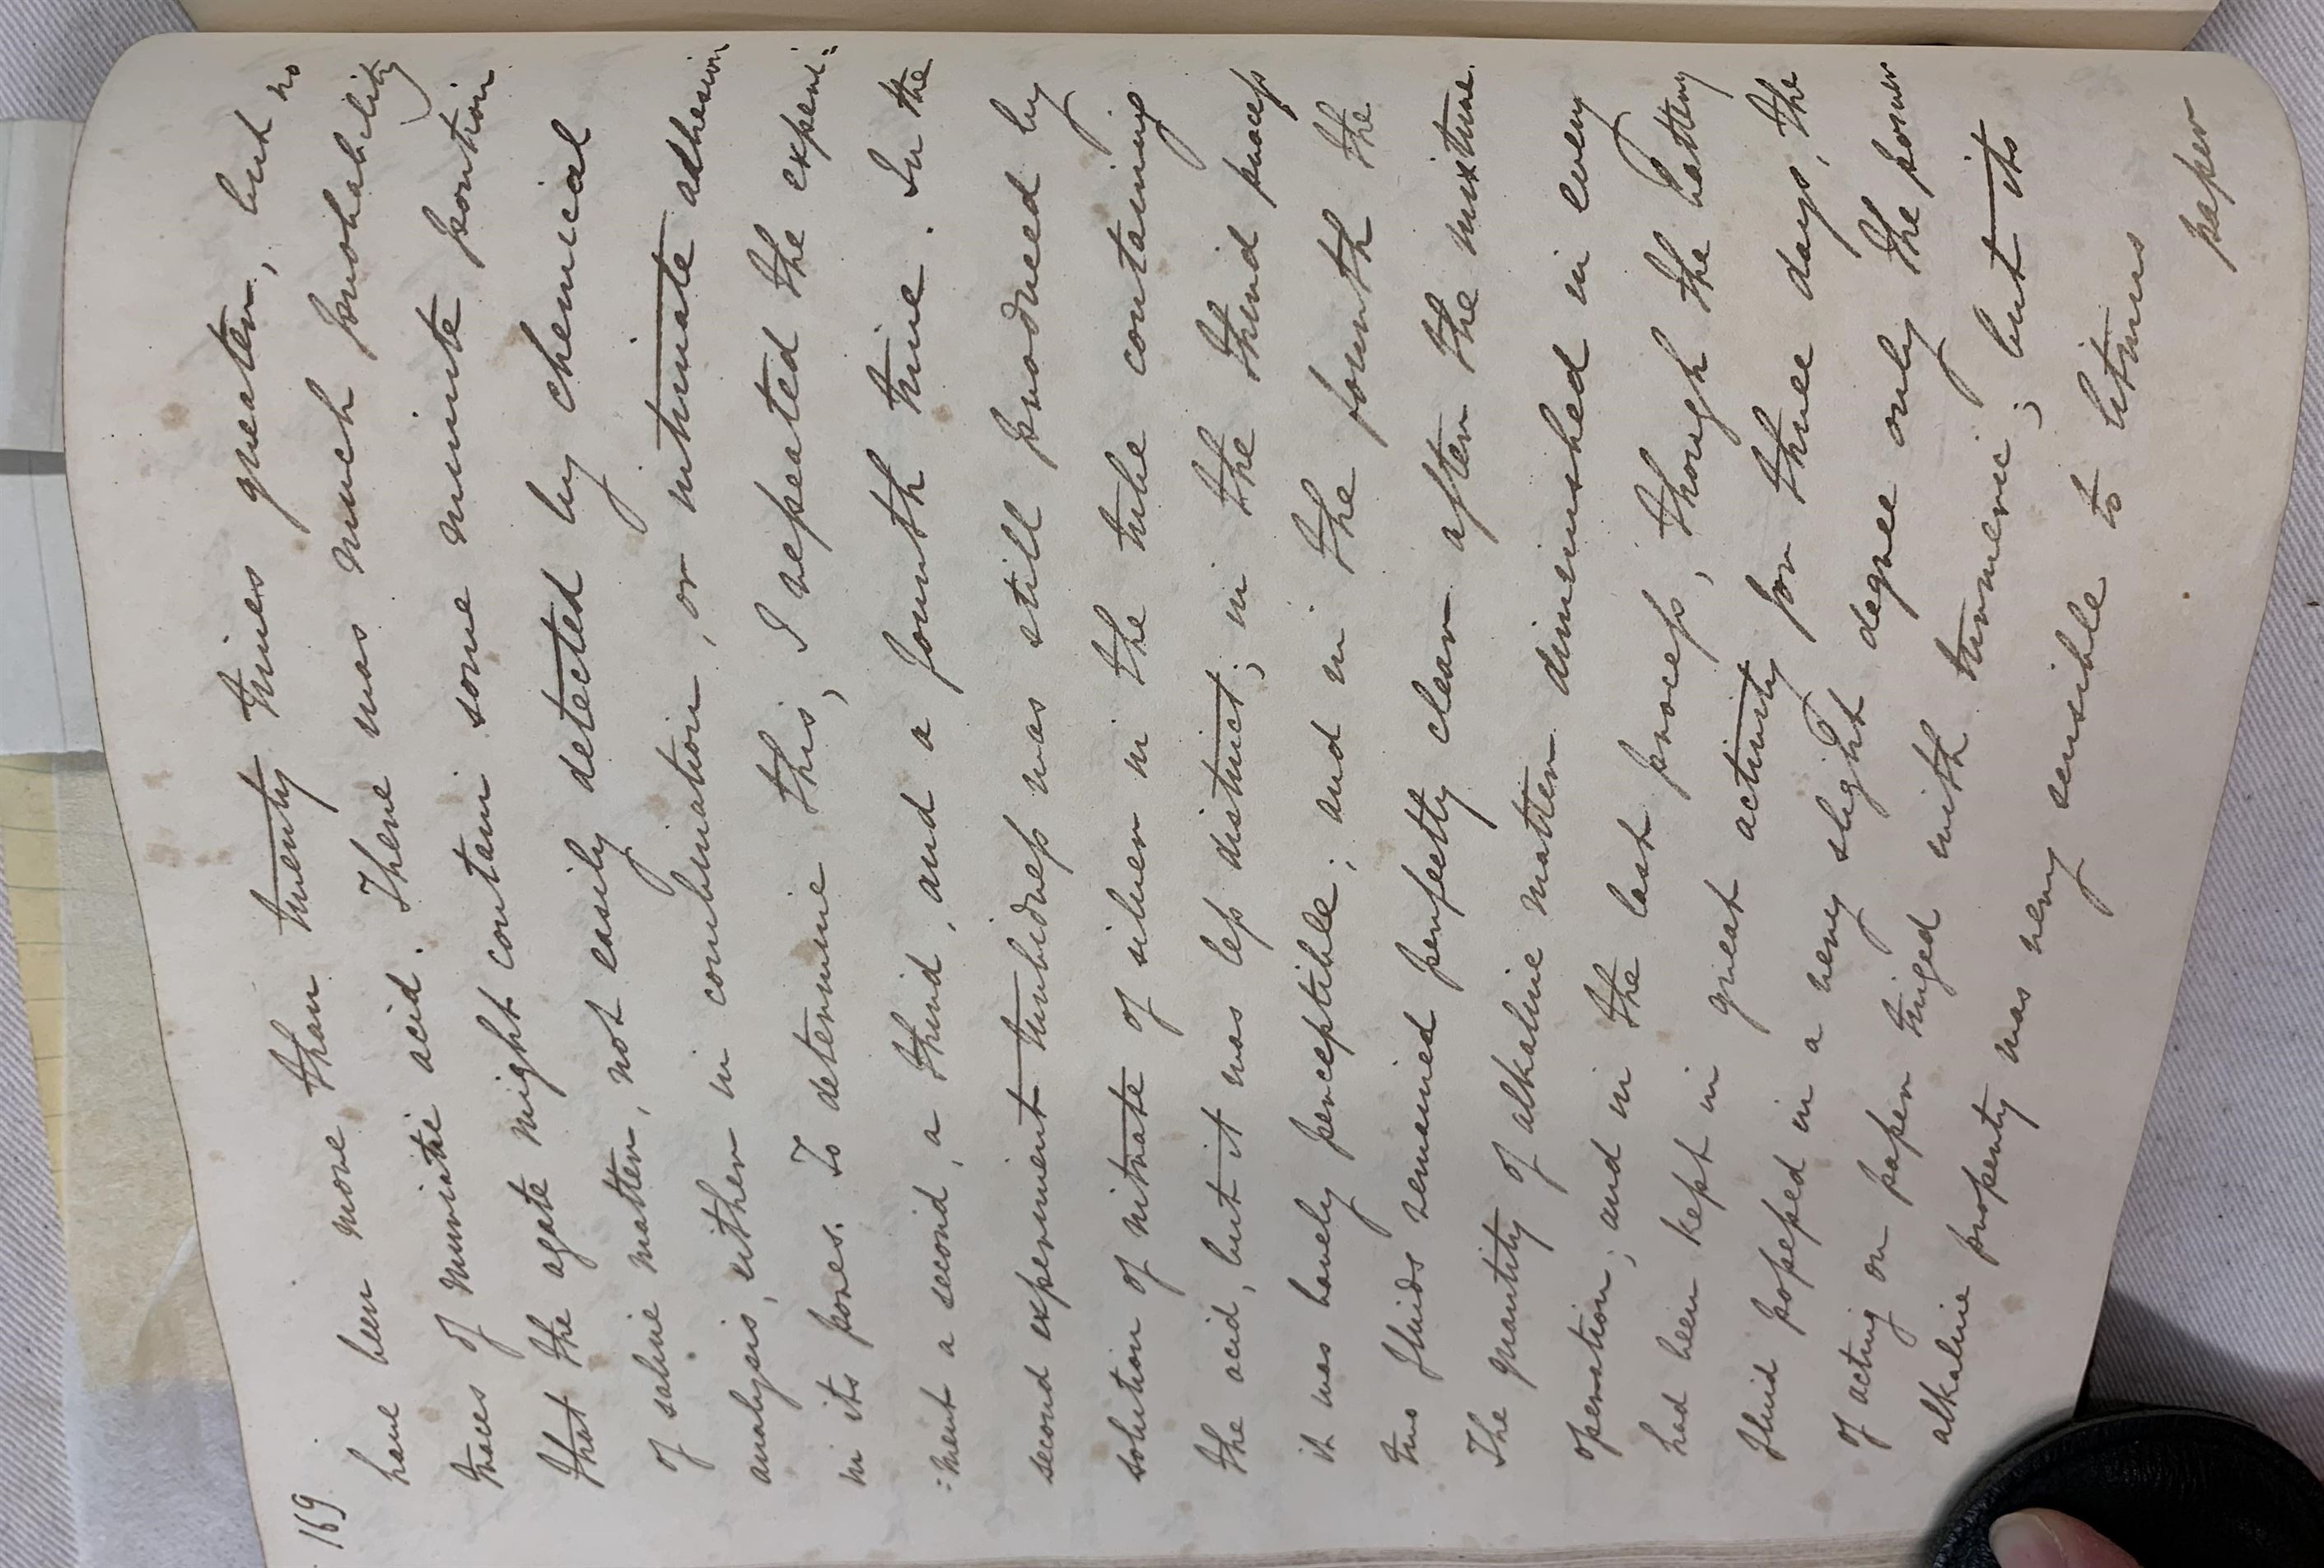 169
have been more than twenty times greater, but no
traces of muriatic acid. There was much probability
that the agate might contain some minute portion
of saline matter, not easily detected by chemical
analysis, either in combination, or intimate adhesion
in its pores. To determine this, I repeated the experi=
=ment a second, a third, and a fourth time. In the
second experiment turbidneſs was still produced by
solution of nitrate of silver in the tube containing
the acid, but it was leſs distinct; in the third proceſs
it was barely perceptible; and in the fourth the
two fluids remained perfectly clear after the mixture.
The quantity of alkaline matter diminished in every
operation; and in the last proceſs, though the battery
had been kept in great activity for three days, the
fluid poſseſsed in a very slight degree only the power
of acting on paper tinged with turmeric; but its
alkaline property was very sensible to litmus
paper